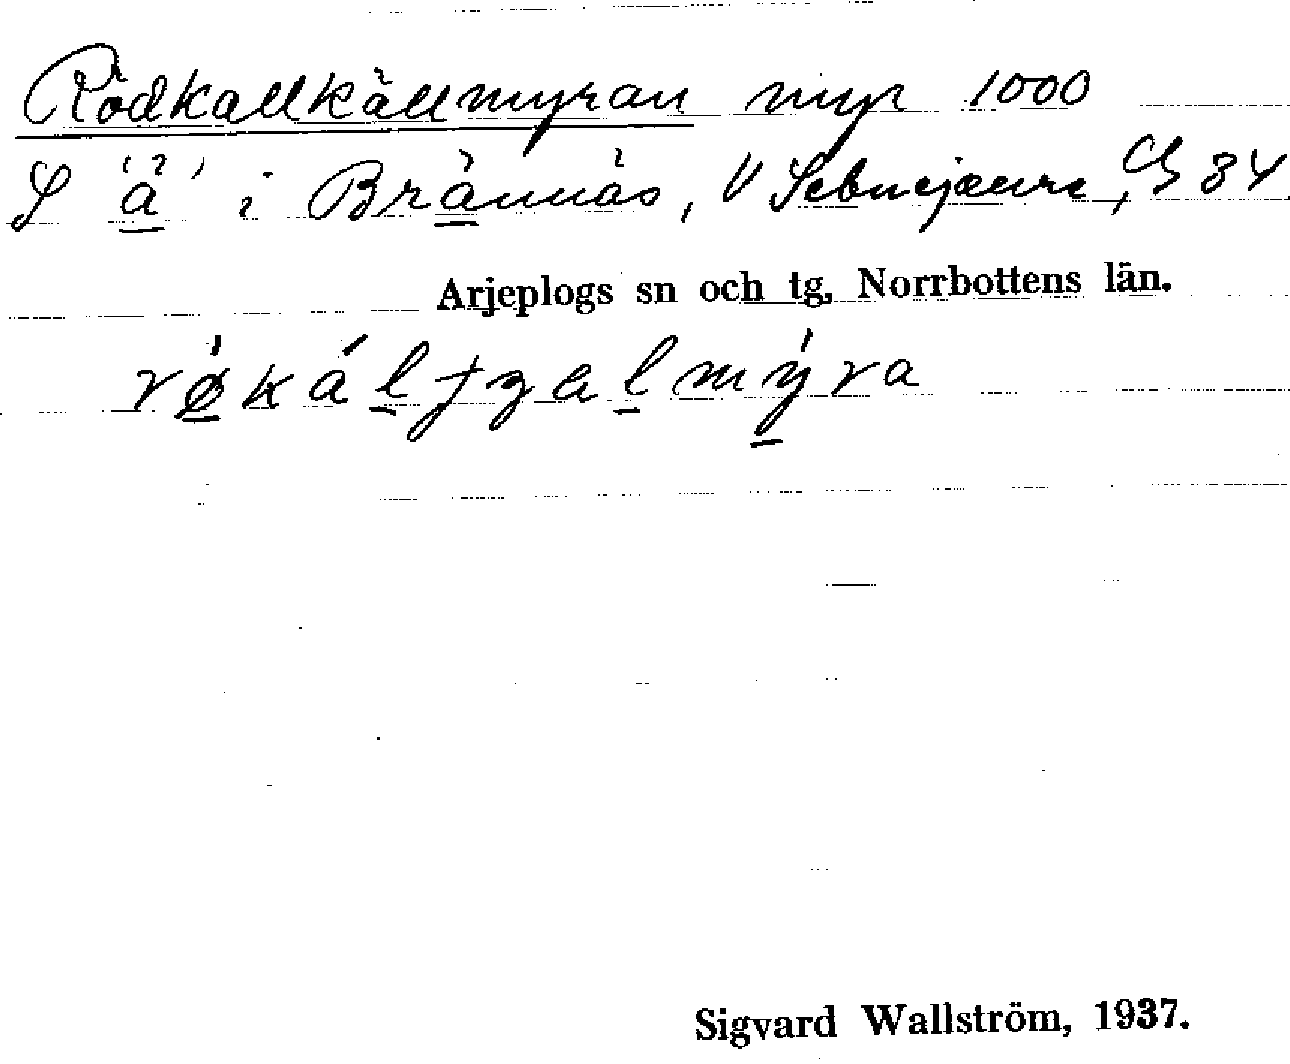 Rödkallkällmyran myr 1000
S "ä" i Brännäs, V Sebnejaure,
Arjeplogs sn och tg, Norrbottens län.
Sigvard Wallström, 1937.